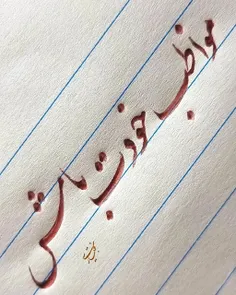 مواظب خودت باش